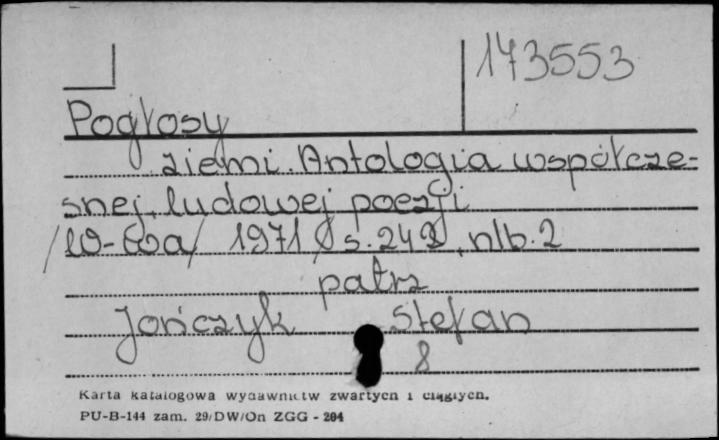 173553
Pogłosy
ziemi. Antologia współcze-
snej ludowej poezji
/W-wa/ 1971, s. 242, nlb. 2
patrz
Jończyk Stefan
8
Karta katalogowa wydawnictw zwartych i ciągłych.
PU-B-144 zam. 29/DW/On ZGG - 204